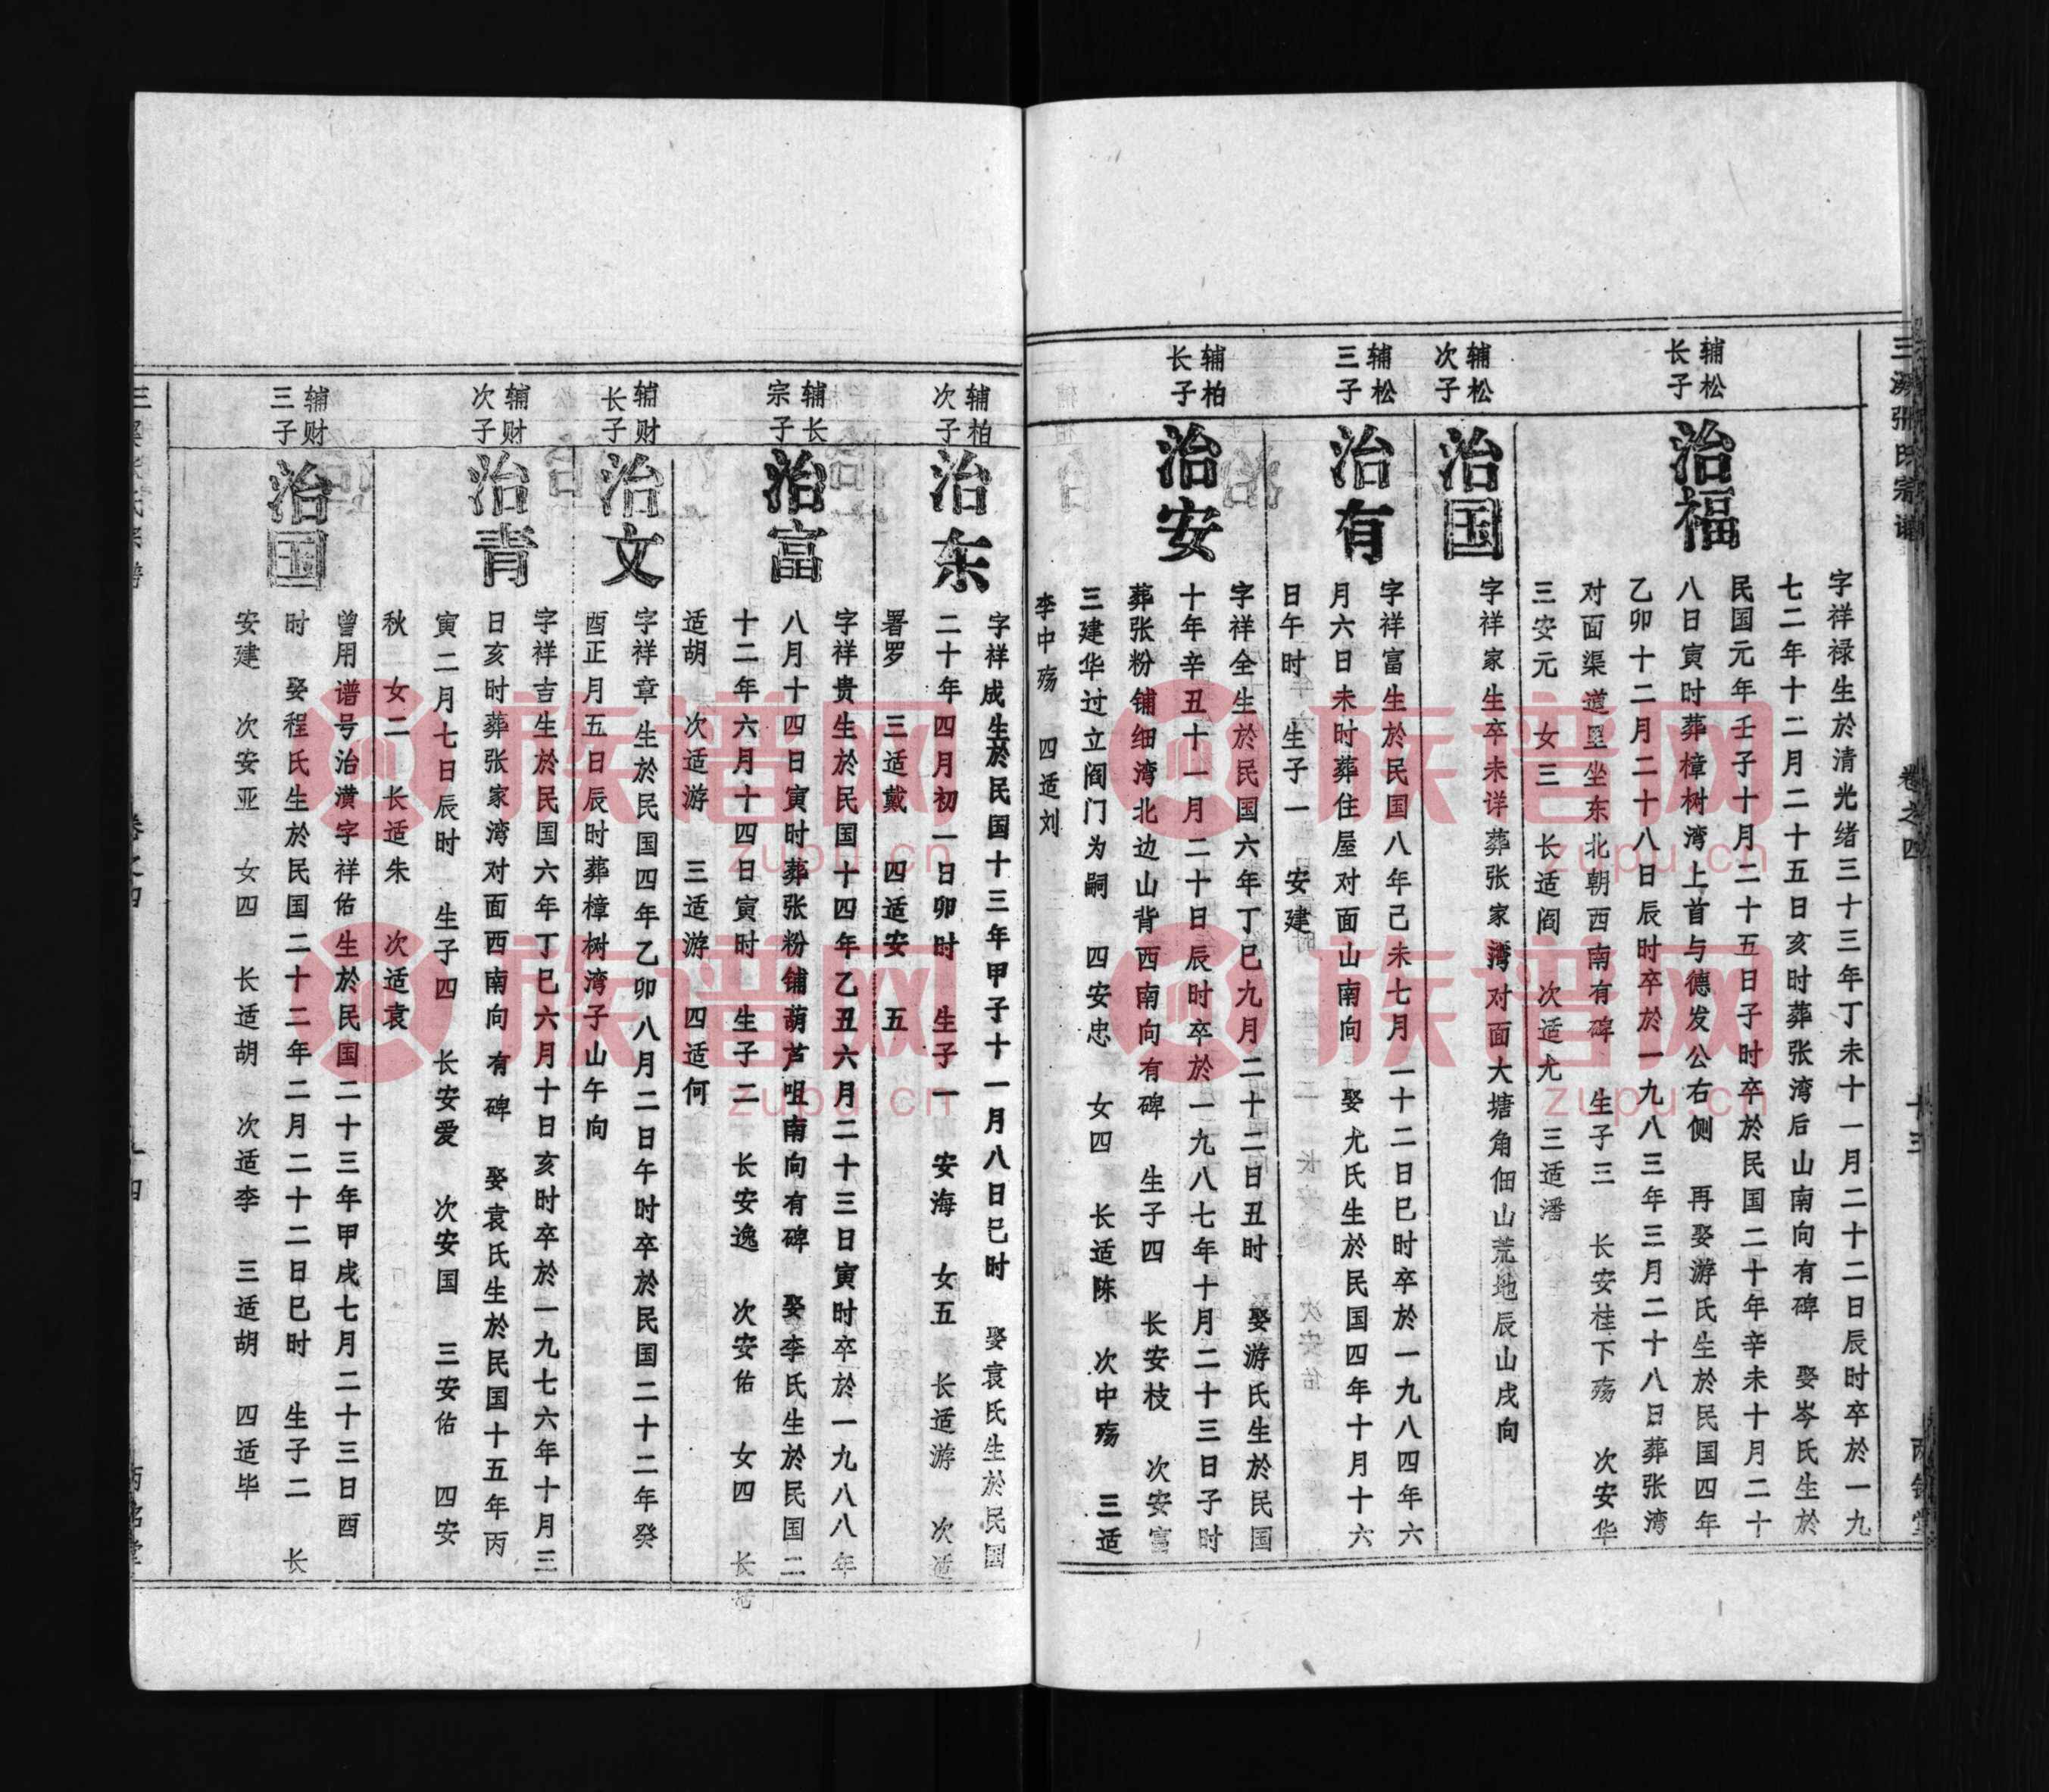 三溪张氏宗谱
卷之四
十三
西铭堂
辅松
长子
治福
字祥禄生於清光绪三十三年丁未十一月二十二日辰时卒於一九
七二年十二月二十五日亥时葬张湾后山南向有碑 娶岑氏生於
民国元年壬子十月二十五日子时卒於民国二十年辛未十月二十
八日寅时葬樟树湾上首与德发公右侧 再娶游氏生於民国四年
乙卯十二月二十八日辰时卒於一九八三年三月二十八日葬张湾
对面渠道里坐东北朝西南有碑 生子三 长安桂下殇 次安华
三安元 女三 长适阎 次适尤 三适潘
辅松
次子
治国
字祥家生卒未详葬张家湾对面大塘角佃山荒地辰山戌向
辅松
三子
治有
字祥富生於民国八年己未七月一十二日巳时卒於一九八四年六
月六日未时葬住屋对面山南向 娶尤氏生於民国四年十月十六
日午时 生子一 安建
辅柏
长子
治安
字祥全生於民国六年丁巳九月二十二日丑时 娶游氏生於民国
十年辛丑十一月二十日辰时卒於一九八七年十月二十三日子时
葬张粉铺细湾北边山背西南向有碑 生子四 长安枝 次安富
三建华过立阎门为嗣 四安忠 女四 长适陈 次中殇 三适
李中殇 四适刘
辅柏
次子
治东
字祥成生於民国十三年甲子十一月八日巳时 娶袁氏生於民国
二十年四月初一日卯时 生子一 安海 女五 长适游 次适
署罗 三适戴 四适安 五
辅长
宗子
治富
字祥贵生於民国十四年乙丑六月二十三日寅时卒於一九八八年
八月十四日寅时葬张粉铺葫芦咀南向有碑 娶李氏生於民国二
十二年六月十四日寅时 生子二 长安逸 次安佑 女四 长适
适胡 次适游 三适游 四适何
辅财
长子
治文
字祥章生於民国四年乙卯八月二日午时卒於民国二十二年癸
酉正月五日辰时葬樟树湾子山午向
辅财
次子
治青
字祥吉生於民国六年丁巳六月十日亥时卒於一九七六年十月三
日亥时葬张家湾对面西南向有碑 娶袁氏生於民国十五年丙
寅二月七日辰时 生子四 长安爱 次安国 三安佑 四安
秋 女二 长适朱 次适袁
辅财
三子
治国
曾用谱号治潢字祥佑生於民国二十三年甲戌七月二十三日酉
时 娶程氏生於民国二十二年二月二十二日巳时 生子二 长
安建 次安亚 女四 长适胡 次适李 三适胡 四适毕
族谱网
zupu.cn
族谱网
zupu.cn
族谱网
zupu.cn
族谱网
zupu.cn